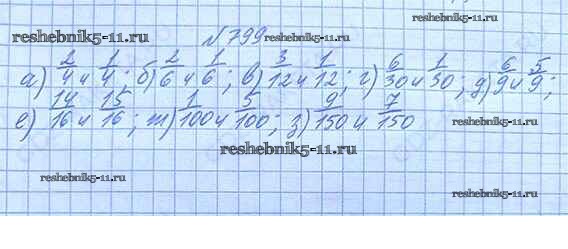 reshebnik5-11.ru
№799
reshebnik5-11.ru
reshebnik5-11.ru
а) 2/4 и 1/4; б) 2/6 и 1/6; в) 3/12 и 1/12; г) 6/30 и 1/30; д) 6/9 и 5/9;
е) 14/16 и 15/16; ж) 1/100 и 5/100; з) 9/150 и 7/150
reshebnik5-11.ru
reshebnik5-11.ru
reshebnik5-11.ru